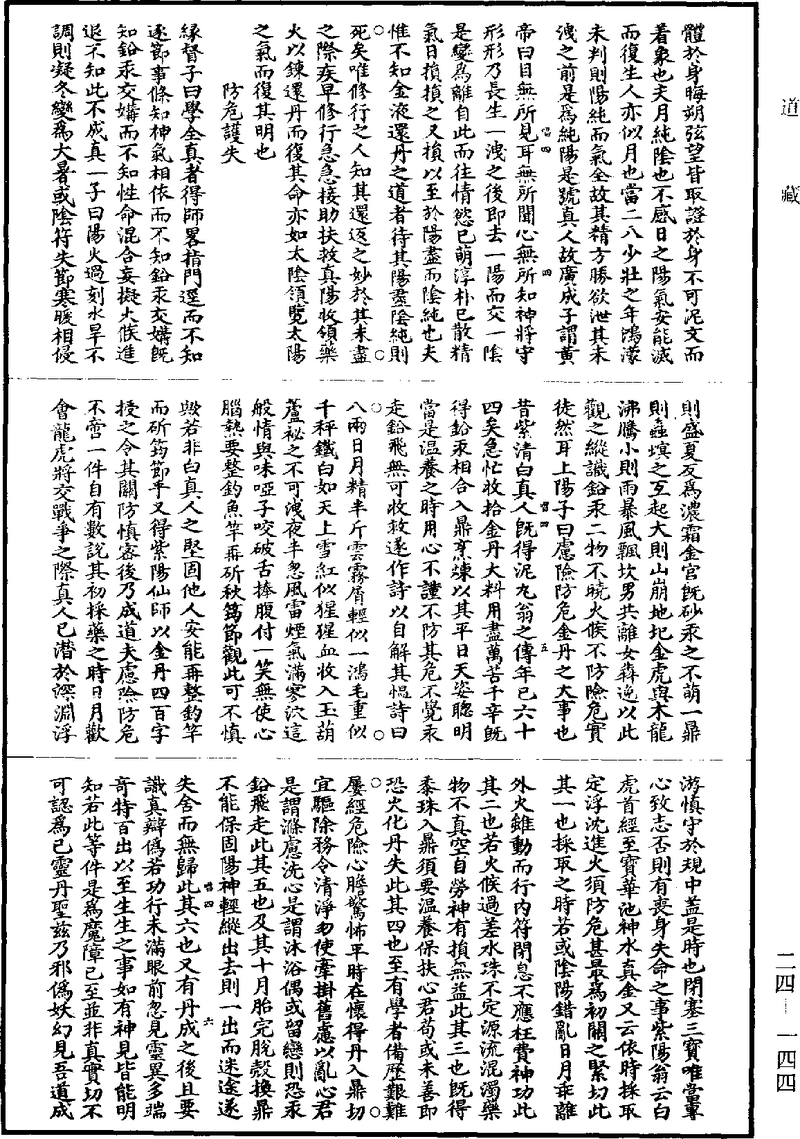 道藏
體於身晦朔弦望皆取證於身不可泥文而
著象也夫月純陰也不感日之陽氣安能滅
而復生人亦似月也當二八少壯之年鴻濛
未判則陽純而氣全故其精方勝欲泄其未
洩之前是爲純陽是號真人故廣成子謂黃
帝曰目無所見耳無所聞心無所知神將守
形形乃長生一洩之後即去一陽而交一陰
是變爲離自此而往情慾已萌淳朴已散精
氣日損損之又損以至於陽盡而陰純也夫
惟不知金液還丹之道者待其陽盡陰純則
死矣唯修行之人知其還返之妙於其未盡
之際疾早修行急急接助扶救真陽收領藥
火以鍊還丹而復其命亦如太陰領覽太陽
之氣而復其明也
防危護失
緣督子曰學全真者得師畧指門逕而不知
逐節事條知神氣相依而不知鉛汞交媾旣
知鉛汞交媾而不知性命混合妄擬火候進
退不知此不成真一子曰陽火過刻水旱不
調則凝冬變爲大暑或陰符失節寒暖相侵
則盛夏反爲濃霜金宮旣砂汞之不萌一鼎
則蟲螟之互起大則山崩地圮金虎與木龍
沸騰小則雨暴風飄坎男共離女犇逸以此
觀之縱識鉛汞二物不曉火候不防險危實
徒然耳上陽子曰慮險防危金丹之大事也
昔紫清白真人旣得泥丸翁之傳年已六十
四矣急忙收拾金丹大料用盡萬苦千辛旣
得鉛汞相合入鼎烹煉以其平日天姿聰明
當是温養之時用心不謹不防其危不覺汞
走鉛飛無可收救遂作詩以自解其愠詩曰
八兩日月精半斤雲霧屑輕似一鴻毛重似
千秤鐵白如天上雪紅似猩猩血收入玉葫
蘆祕之不可洩夜半忽風雷煙氣滿寥泬這
般情與味啞子咬破舌捧腹付一笑無使心
腦熱要整釣魚竿再斫秋筠節觀此可不慎
歟若非白真人之堅固他人安能再整釣竿
而斫筠節乎又得紫陽仙師以金丹四百字
授之令其關防慎密後乃成道夫慮險防危
不啻一件自有數說其初採藥之時日月歡
會龍虎將交戰爭之際真人已潛於深淵浮
游慎守於規中蓋是時也閉塞三寶唯當專
心致志否則有喪身失命之事紫陽翁云白
虎首經至寶華池神水真金又云依時採取
定浮沈進火須防危甚最爲初關之緊切此
其一也採取之時若或陰陽錯亂日月乖離
外火雖動而行内符閉息不應枉費神功此
其二也若火候過差水珠不定源流混濁藥
物不真空自勞神有損無益此其三也旣得
黍珠入鼎須要温養保扶心君苟或未善即
恐火化丹失此其四也至有學者備歷艱難
屢經危險心膽驚怖平時在懷得丹入鼎切
宜驅除務令清淨勿使牽掛舊慮以亂心君
是謂滌慮洗心是謂沐浴偶或留戀則恐汞
鉛飛走此其五也及其十月胎完脫殼換鼎
不能保固陽神輕縱出去則一出而迷途遂
失舍而無歸此其六也又有丹成之後且要
識真辯僞若功行未滿眼前忽見靈異多瑞
奇特百出以至生生之事如有神見皆能明
知若此等件是爲魔障已至並非真實切不
可認爲已靈丹聖兹乃邪僞妖幻見吾道成
二四—一四四